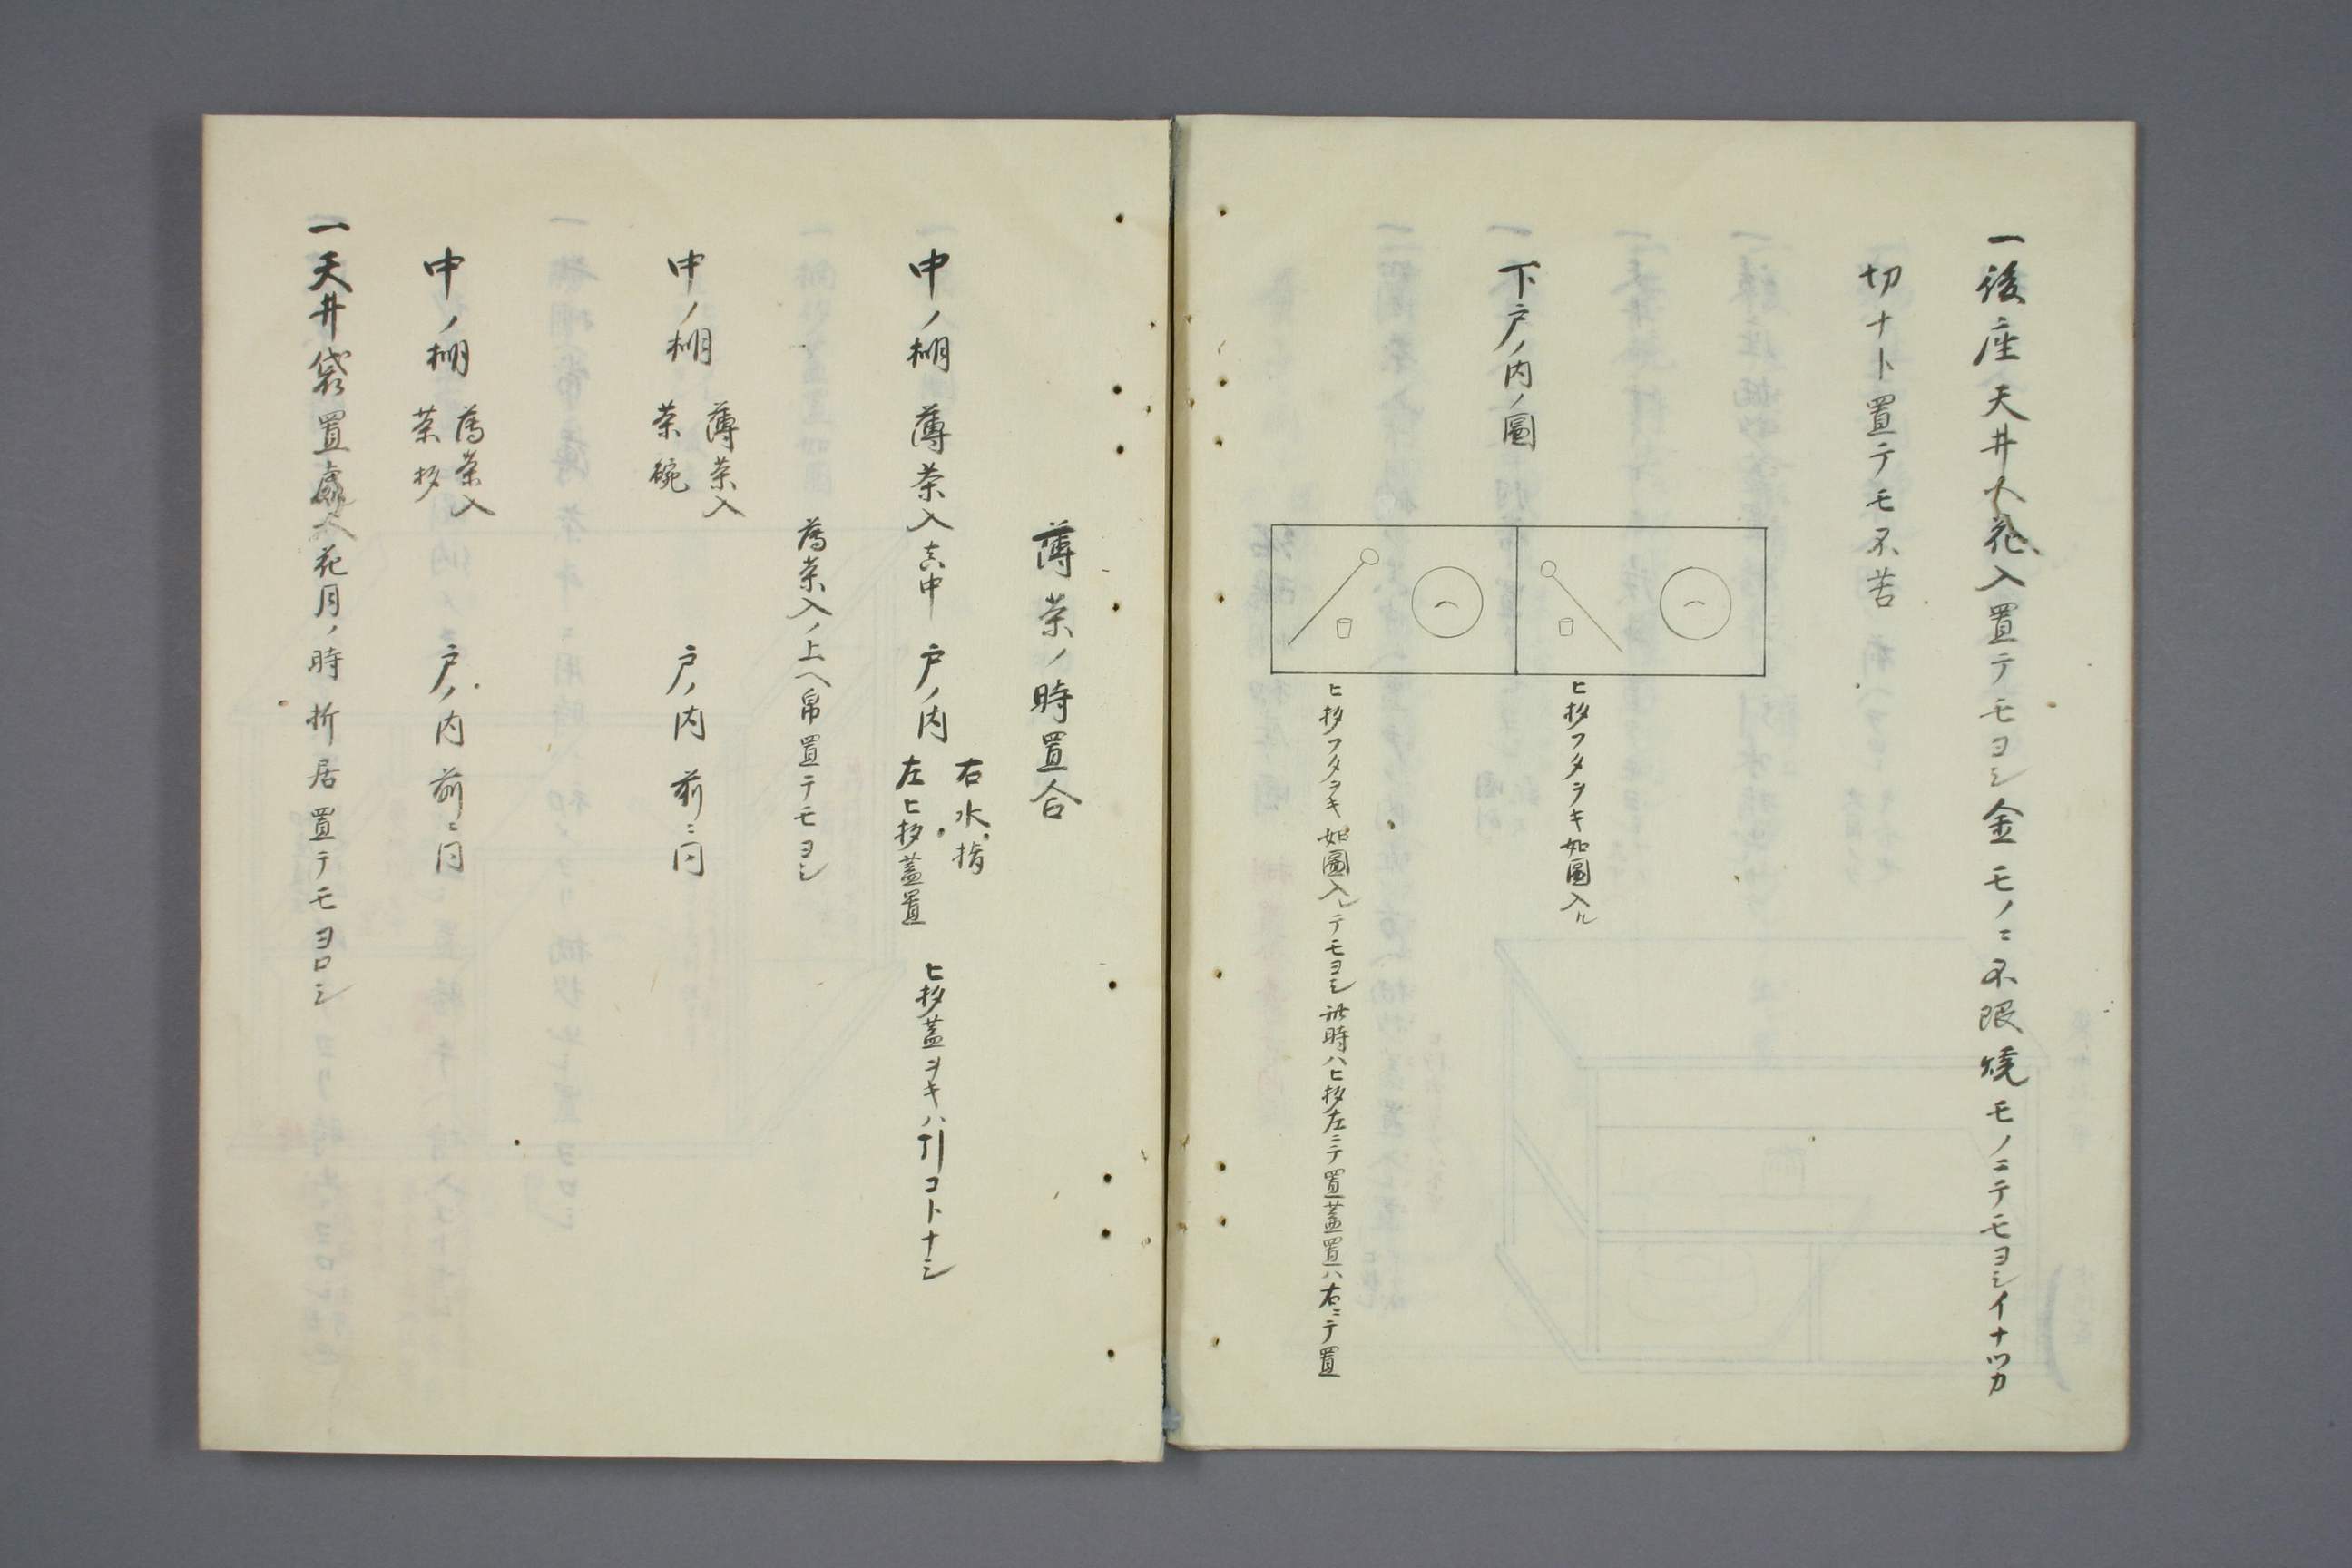 一後座天井ヘ花入置テモヨシ金モノニ不限焼モノニテモヨシイナツカ
切ナト置テモ不苦
下戸ノ内ノ圖
ヒ杓フタヲキ如圖入ル
ヒ杓フタヲキ如圖入レテモヨシ此時ハヒ杓左ニテ置蓋置ハ右ニテ置
薄茶ノ時置合
中ノ棚 薄茶入真中 戸ノ内 右水指
左ヒ杓蓋置
ヒ杓蓋ヲキハ引コトナシ
薄茶入ノ上ヘ帛置テモヨシ
中ノ棚 薄茶入
茶碗
戸ノ内 前ニ同
中ノ棚 薄茶入
茶杓
戸ノ内 前ニ同
一天井袋置處ヘ花月ノ時折居置テモヨロシ